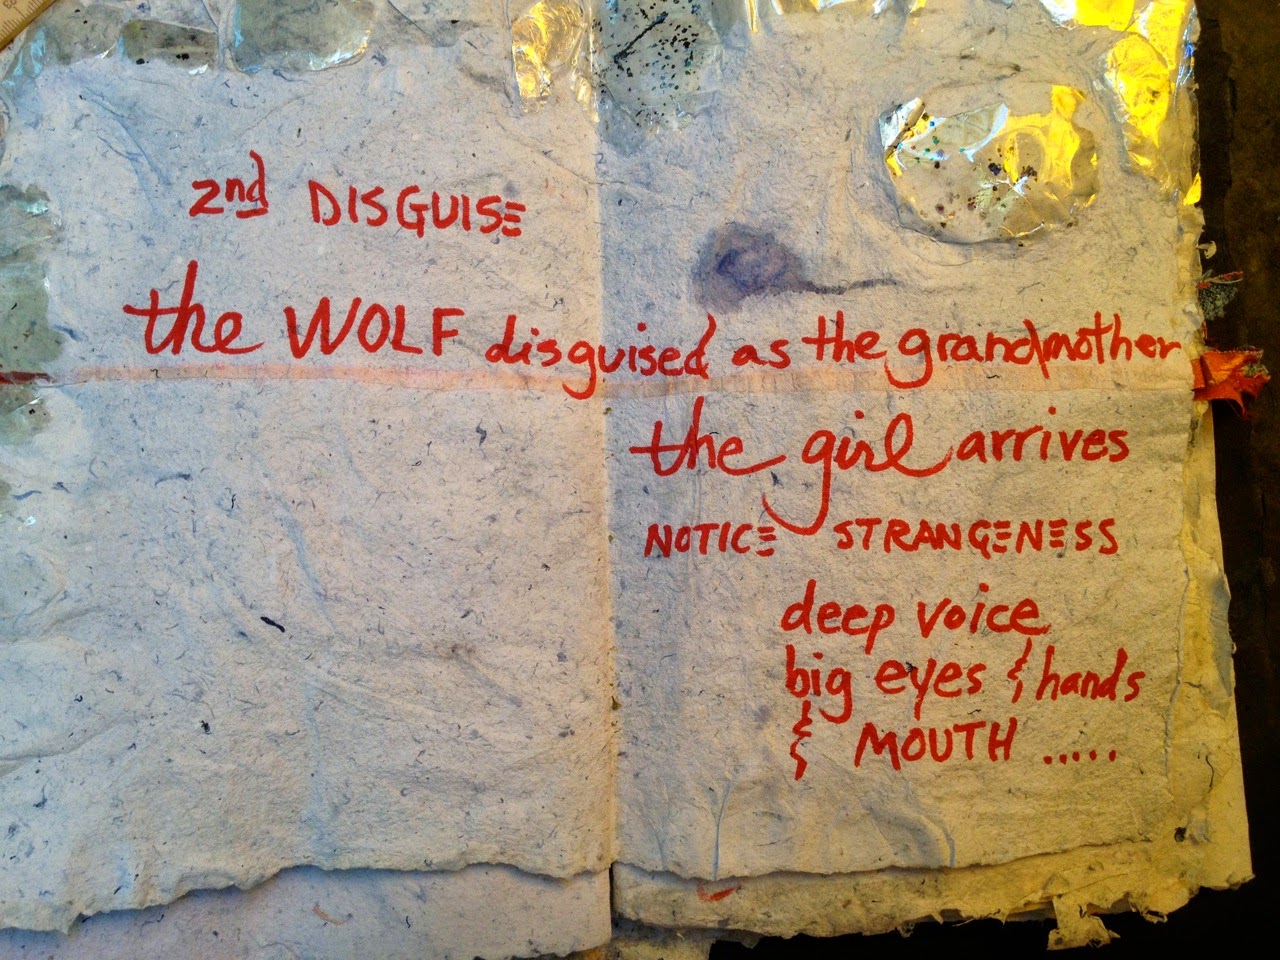 2nd DISGUISE
the WOLF disguised as the grandmother
the girl arrives
NOTICE STRANGENESS
deep voice
big eyes & hands
& MOUTH .....